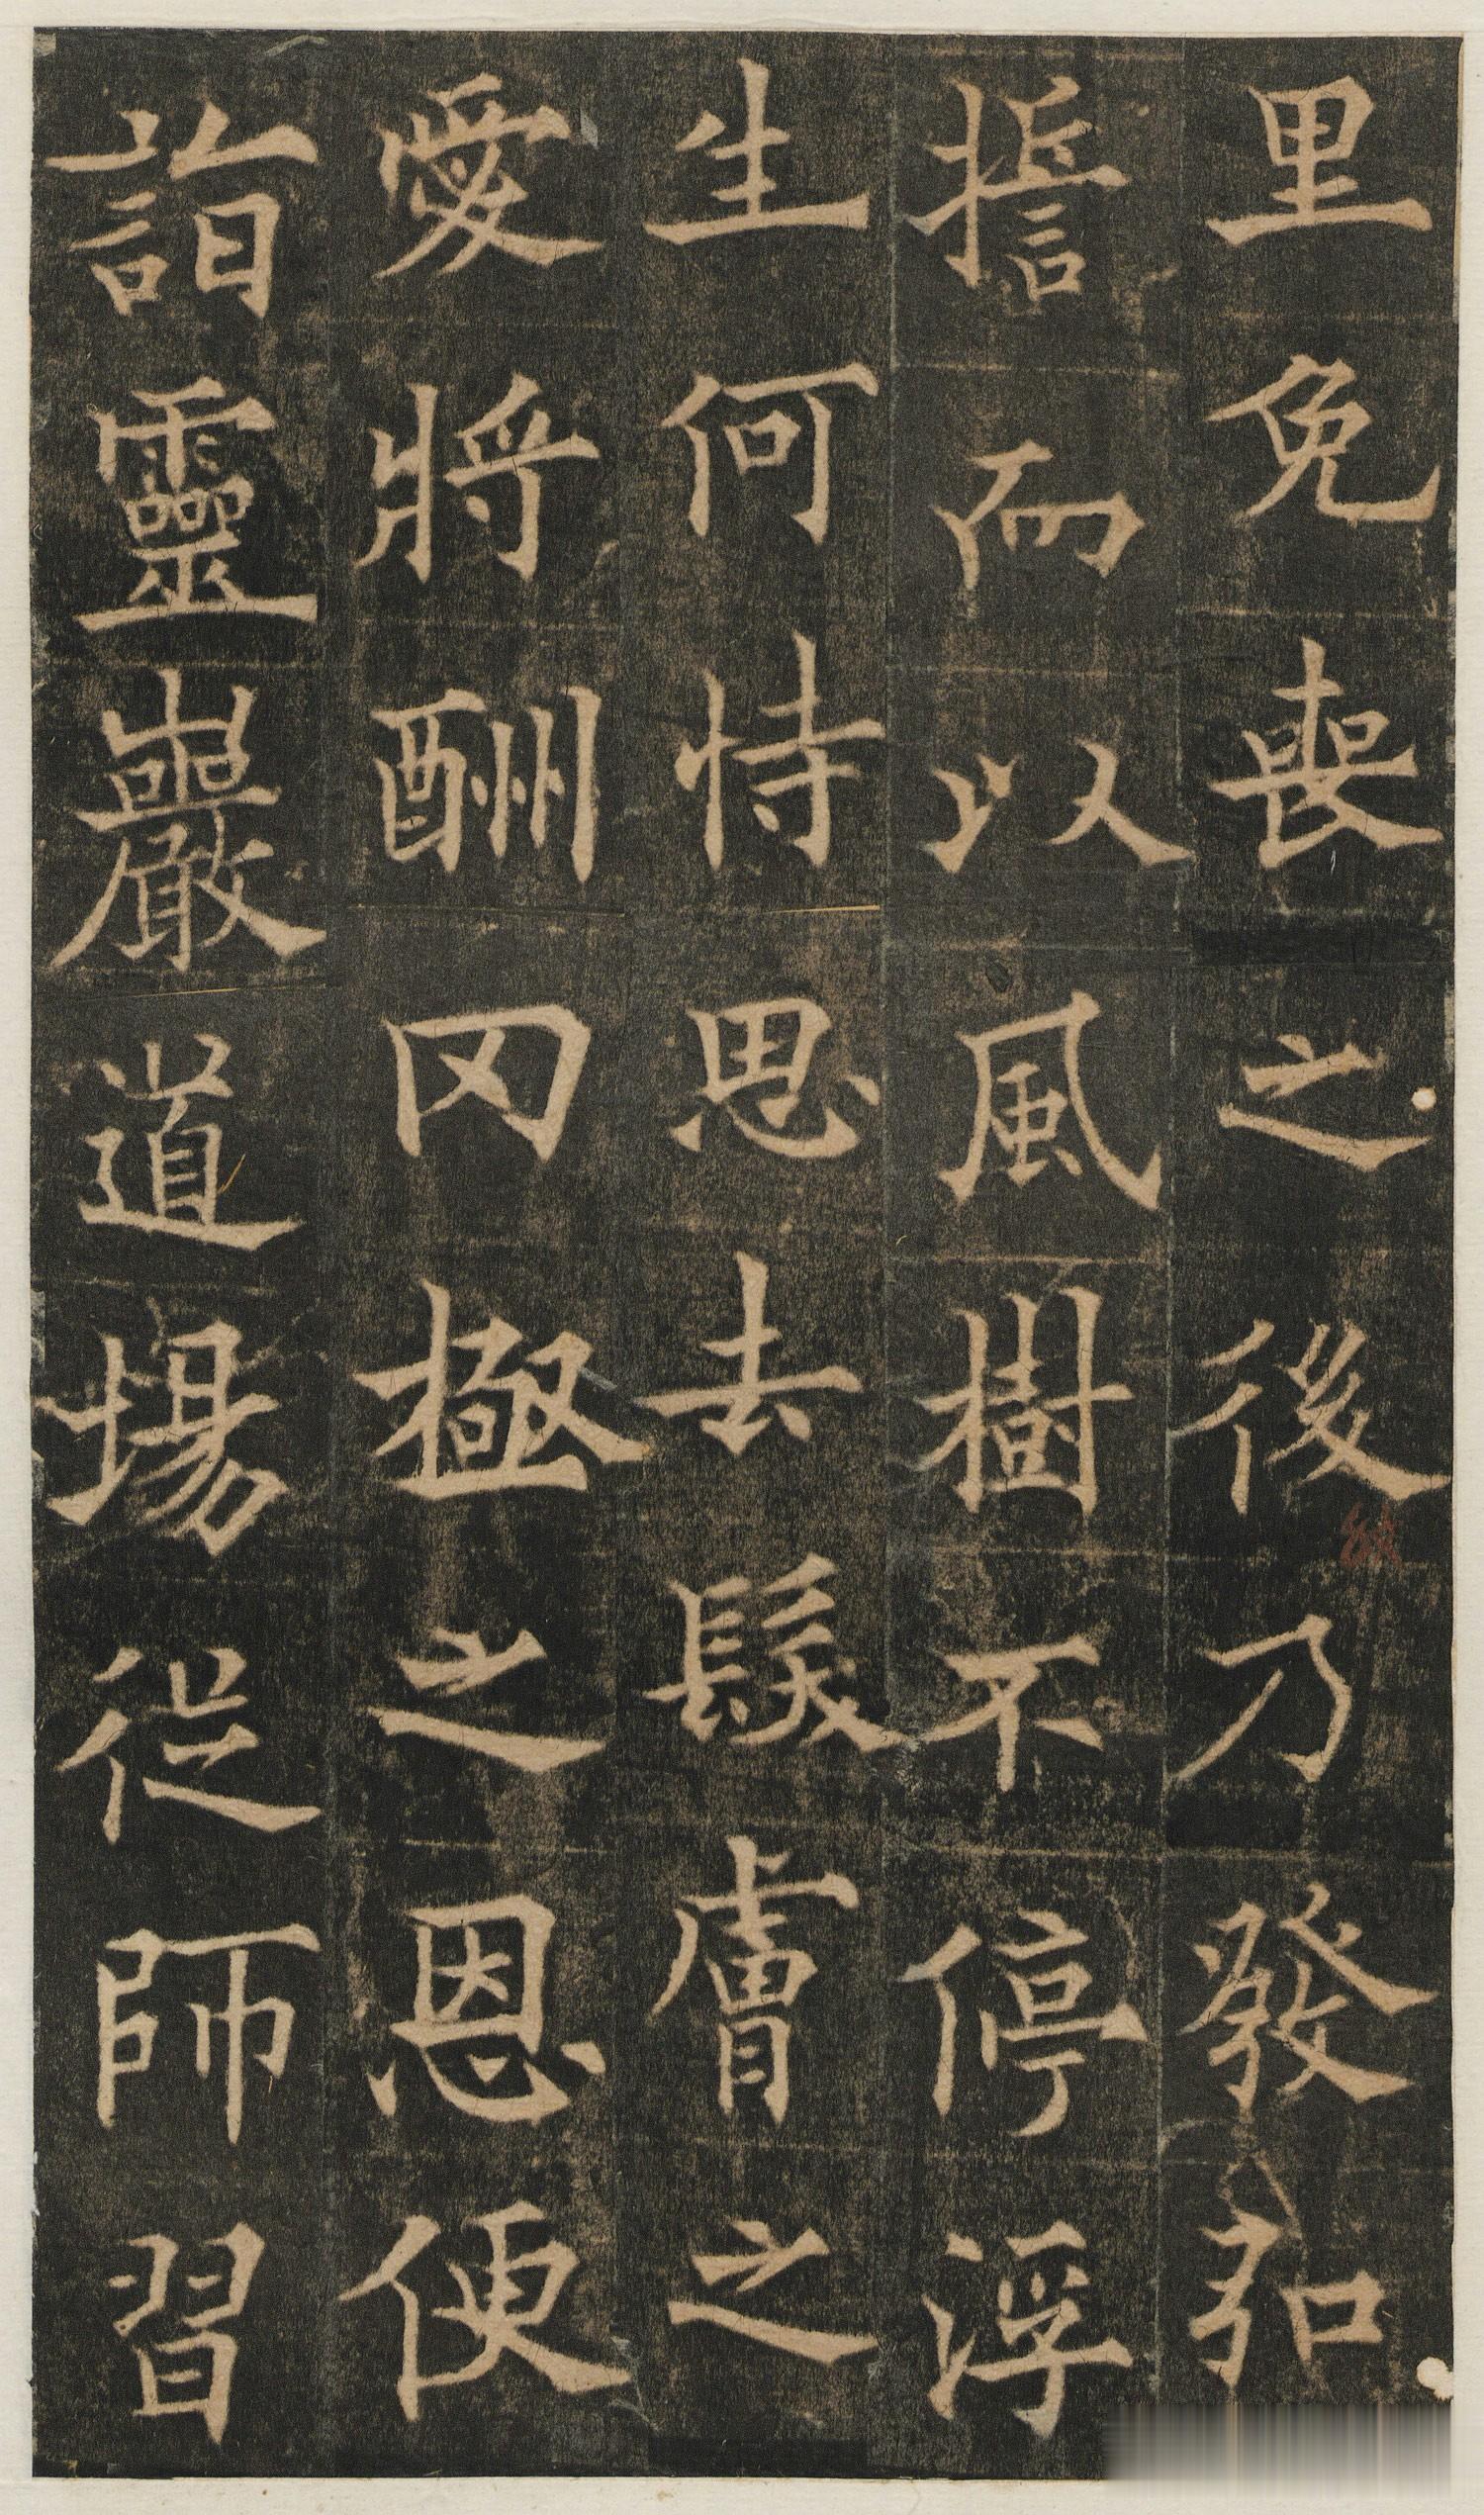 里免喪之後乃發弘
擔而以風樹不停浮
生何恃思去髮膚之
愛將酬罔極之恩便
詣靈巖道場從師習